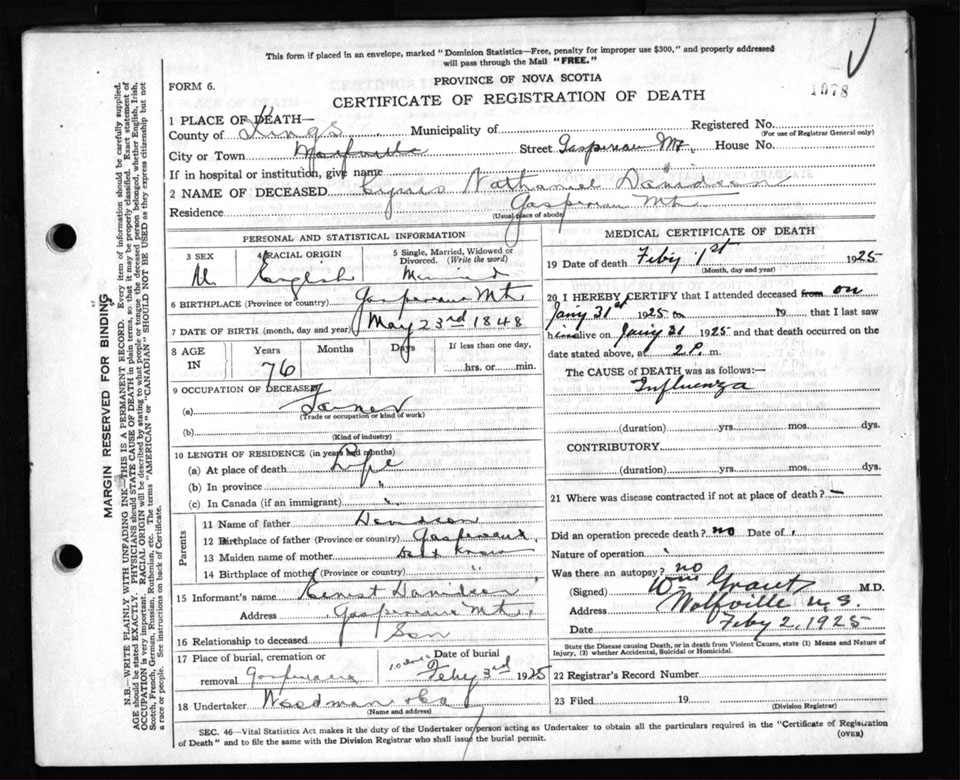 This form if placed in an envelope, marked "Dominion Statistics—Free, penalty for improper use $300," and properly addressed
will pass through the Mail "FREE."
PROVINCE OF NOVA SCOTIA
FORM 6.
CERTIFICATE OF REGISTRATION OF DEATH
1078
1 PLACE OF DEATH—
County of Kings Municipality of Registered No.
(For use of Registrar General only)
City or Town Wolfville Street Gaspereau Mt. House No.
If in hospital or institution, give name
2 NAME OF DECEASED Cyrus Nathaniel Davidson
Residence Gaspereau Mt.
(Usual place of abode)
PERSONAL AND STATISTICAL INFORMATION
3 SEX 4 RACIAL ORIGIN 5 Single, Married, Widowed or Divorced. (Write the word)
M. English Married
6 BIRTHPLACE (Province or country) Gaspereau Mt.
7 DATE OF BIRTH (month, day and year) May 23rd 1848
8 AGE IN Years Months Days If less than one day,
76 hrs. or min.
9 OCCUPATION OF DECEASED
(a) Farmer
(Trade or occupation or kind of work)
(b)
(Kind of industry)
10 LENGTH OF RESIDENCE (in years and months)
(a) At place of death Life
(b) In province "
(c) In Canada (if an immigrant) "
Parents
11 Name of father Davidson
12 Birthplace of father (Province or country) Gaspereau
13 Maiden name of mother Dont know
14 Birthplace of mother (Province or country) "
15 Informant's name Ernest Davidson
Address Gaspereau Mt.
16 Relationship to deceased Son
17 Place of burial, cremation or removal Gaspereau Date of burial Feby 3rd 1925
18 Undertaker Woodman & Co
(Name and address)
MEDICAL CERTIFICATE OF DEATH
19 Date of death Feby 1st 1925
(Month, day and year)
20 I HEREBY CERTIFY that I attended deceased from on
Jany 31st 1925 to 19 that I last saw
him alive on Jany 31 1925 and that death occurred on the
date stated above, at 2 P. m.
The CAUSE OF DEATH was as follows:—
Influenza
(duration) yrs. mos. dys.
CONTRIBUTORY
(duration) yrs. mos. dys.
21 Where was disease contracted if not at place of death? —
Did an operation precede death? no Date of
Nature of operation
Was there an autopsy? no
(Signed) Grant M.D.
Address Wolfville N.S.
Date Feby 2, 1925
State the Disease causing Death, or in death from Violent Causes, state (1) Means and Nature of
Injury, (2) whether Accidental, Suicidal or Homicidal.
22 Registrar's Record Number
23 Filed 19
(Division Registrar)
SEC. 46—Vital Statistics Act makes it the duty of the Undertaker or person acting as Undertaker to obtain all the particulars required in the "Certificate of Registration
of Death" and to file the same with the Division Registrar who shall issue the burial permit.
(OVER)
MARGIN RESERVED FOR BINDING
N.B.—WRITE PLAINLY WITH UNFADING INK—THIS IS A PERMANENT RECORD. Every item of information should be carefully supplied.
AGE should be stated EXACTLY. PHYSICIANS should STATE CAUSE OF DEATH in plain terms, so that it may be properly classified. Exact statement of
OCCUPATION is very important. RACIAL ORIGIN will be described by stating to what people or tongue the deceased person belonged, whether English, Irish,
Scotch, French, German, Russian, Ruthenian, etc. The terms "AMERICAN" or "CANADIAN" SHOULD NOT BE USED as they express citizenship but not
a race or people. See instructions on back of Certificate.